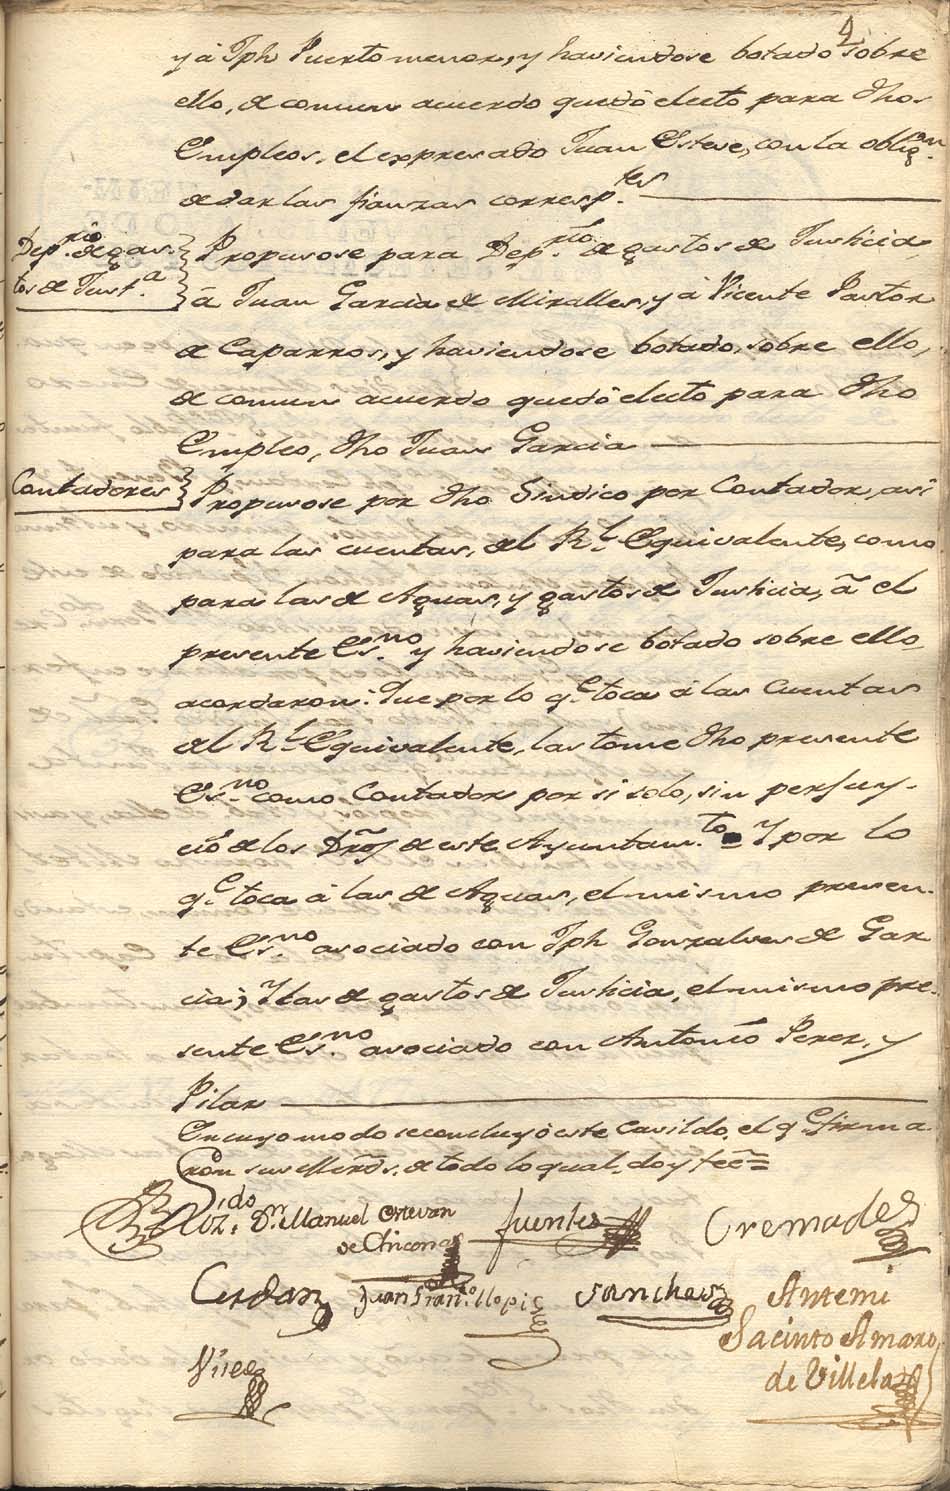 4
y á Jph Puerto menor, y haviendose botado sobre
ello, de comun acuerdo quedó electo para dhos
Empleos, el expresado Juan Esteve, con la oblig.on
de dar las fianzas corresp.tes
Dep.rio de gas-
tos de Just.a
Propusose para Dep.rio de gastos de Justicia,
á Juan Garcia de Miralles, y á Vicente Pastor
de Caparros, y haviendose botado, sobre ello,
de comun acuerdo quedó electo para dho
Empleo, dho Juan Garcia
Contadores
Propusose por dho Sindico por Contador, asi
para las cuentas, del R.l Equivalente, como
para las de Aguas, y gastos de Justicia, á el
presente Es.no y haviendose botado sobre ello
acordaron: Que por lo q.e toca á las Cuentas
del R.l Equivalente, las tome dho presente
Es.no como Contador por si solo, sin perjuy-
cio de los Dros de este Ayuntam.to Y por lo
q.e toca á las de Aguas, el mismo presen-
te Es.no asociado con Jph Gonzalves de Gar
cia; Y las de gastos de Justicia, el mismo pre-
sente Es.no asociado con Antonio Perez, y
Pilar
En cuyo modo se concluyó este Cavildo, el q.e firma
ron sus Merds. de todo lo qual, doy feé
Lizdo. Dn. Manuel Estevan
de Chicona
Fuentes
Cremades
Cerdan
Juan Fran.co Llopis
Sanches
Antemi
Jacinto Amaro
de Villela